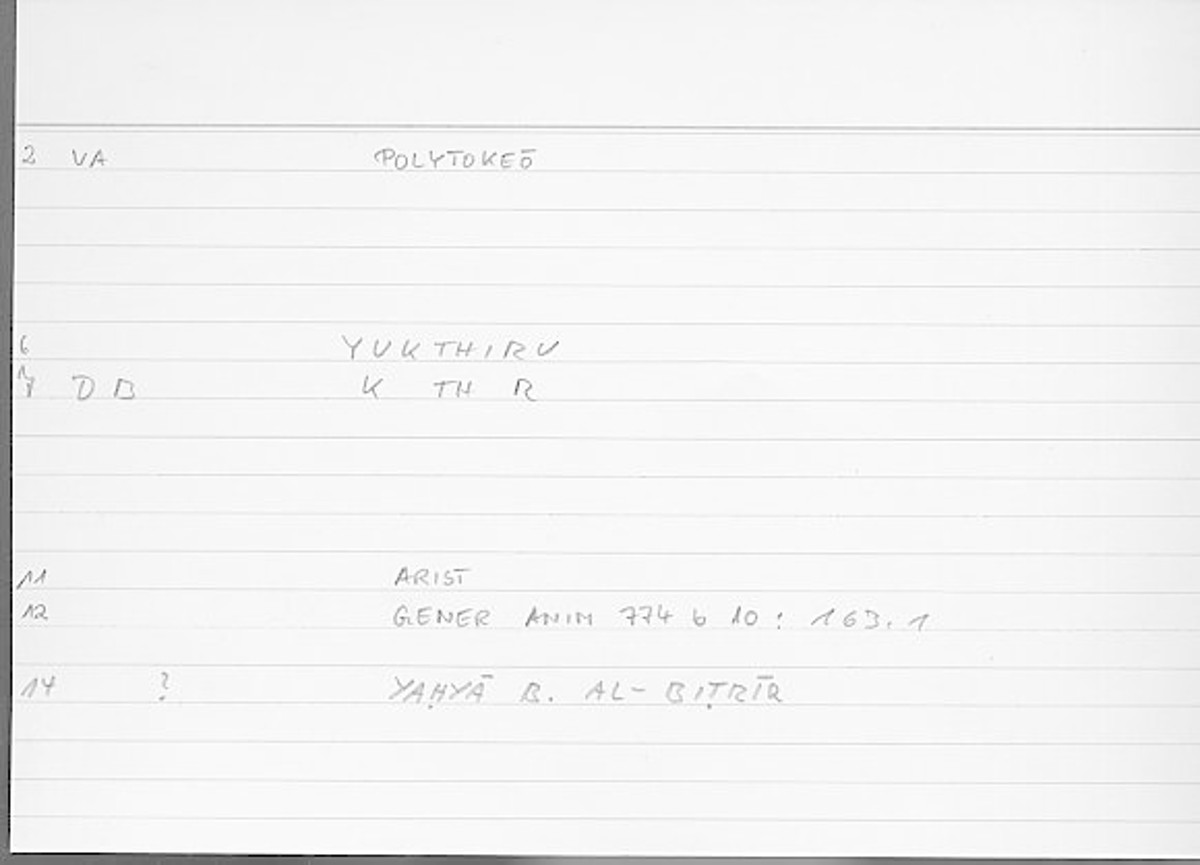 2 VA POLYTOKEŌ
6 YUKTHIRU
7 D B K TH R
11 ARIST
12 GENER ANIM 774 b 10 : 163.1
14 ? YAḤYĀ B. AL-BIṬRĪR